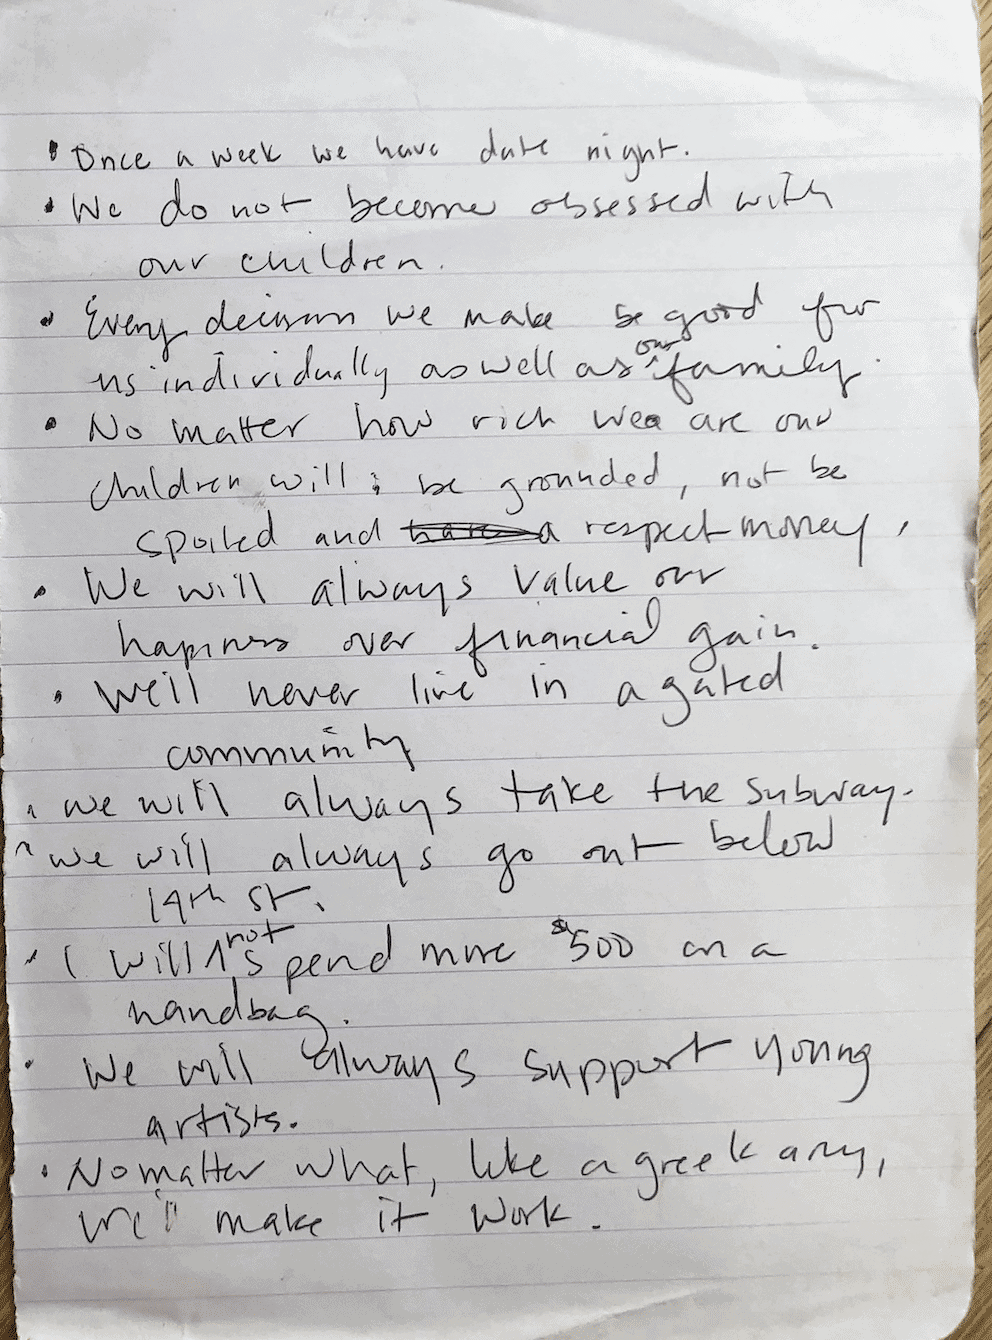 • Once a week we have date night.
• We do not become obsessed with
our children.
• Every decision we make be good for
us individually as well as our family.
• No matter how rich we are our
children will be grounded, not be
spoiled and respect money.
• We will always value our
happiness over financial gain.
• We'll never live in a gated
community
• we will always take the subway.
• we will always go out below
14th St.
• I will not spend more $500 on a
handbag.
• We will always support young
artists.
• No matter what, like a greek
we'll make it work.